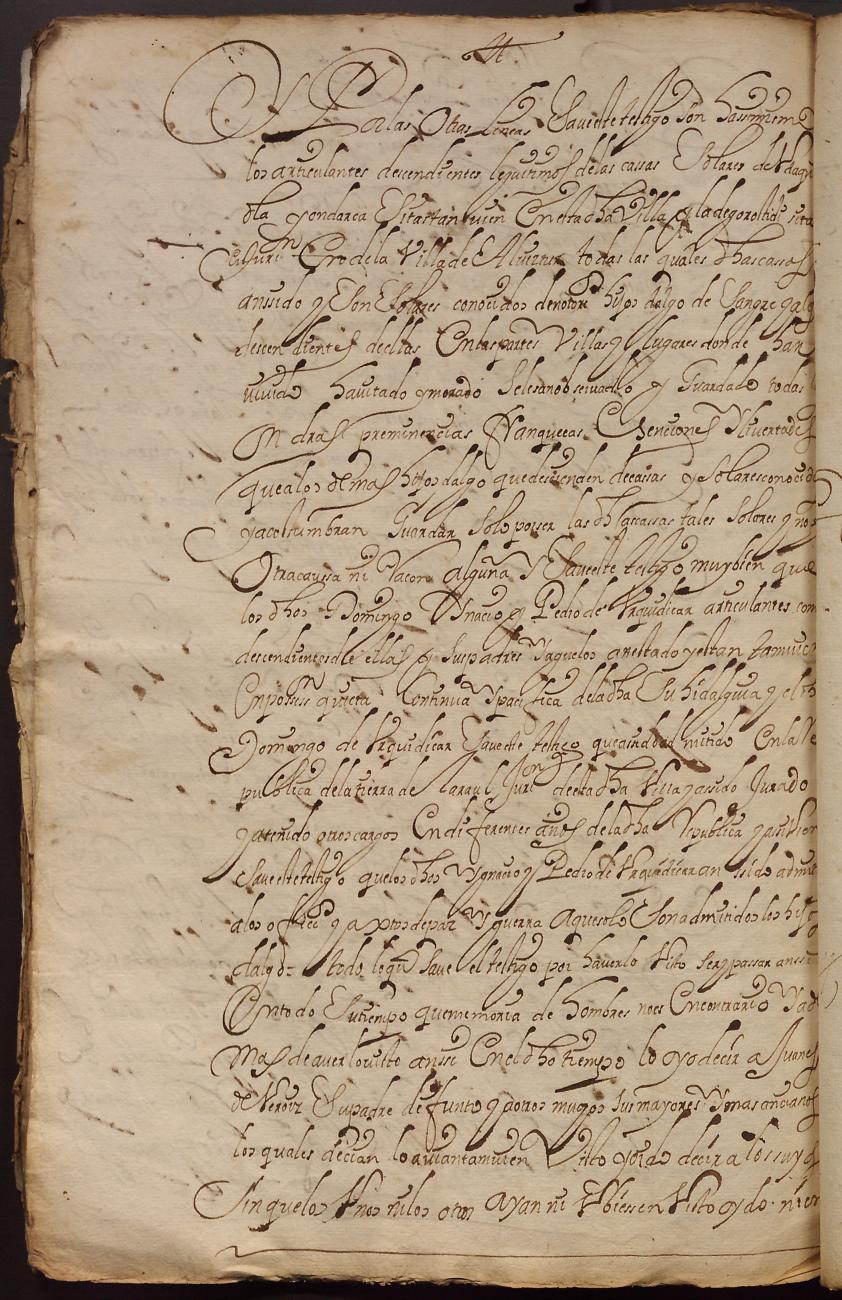 Y Por las otras lineas Save este testigo son hassimiem
los articulantes descendientes lejitimos de las cassas Solares de
ola yondarca Sitas tanvien en esta dha Villa y la de gorostidi sita
en juri on de la Villa de todas las quales dhas cassas
an ssido y son Solares conocidos de notorios hijos dalgo de sangre y a los
descendientes de ellas En las partes Villas y lugares donde han
vivido havitado y morado Seles an observado y Guardado todas
ondras preminencias franquecas Esenciones y livertades
que a los demas hijos dalgo que descienden de cassas y Solares conocidos
y acostumbran Guardar Solo por ser las dhas cassas tales Solares y no
Otra caussa ni Racon alguna Y Save este testigo muy bien que
los dhos Domingo Ynacio y Pedro de Urquidicar articulantes com
descendientes de ellas y sus padres y aquelos an estado y estan tamvien
En possess on quieta Continua y pacifica de la dha Su hidalguia y el dh
Domingo de Urquidicar Save este testigo que a sido admitido En la Re
publica de la tierra de larraul Juri on de esta dha Villa y a ssido Jurado
y a tenido otros cargos En diferentes años de la dha Republica y assi bien
Save este testigo que los dhos Ygnacio y Pedro de Urquidicar an sido admi
a los officios y actos de paz y guerra a que solo Son admitidos los hijos
dalgo = todo lo qual Save el testigo por haverlo Visto ser y passar anssi
En todo Su tiempo que memoria de hombres no es En contrario Y ad
Mas de averlo visto anssi En el dho tiempo lo oyo decir a Juanes
de Su padre defunto y a otros muchos sus mayores y mas ancianos
los quales decian lo avian tamvien Visto y oido decir a los suyos
Sin que los Unos ni los otros ayan ni Ubiessen Visto oydo ni en